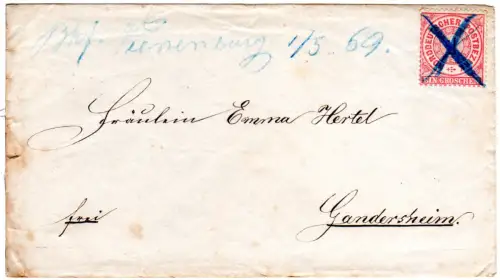 1/5 69.
NORDDEUTSCHER POSTBEZIRK
EIN GROSCHEN
Fräulein Emma Hertel
frei
Gandersheim.